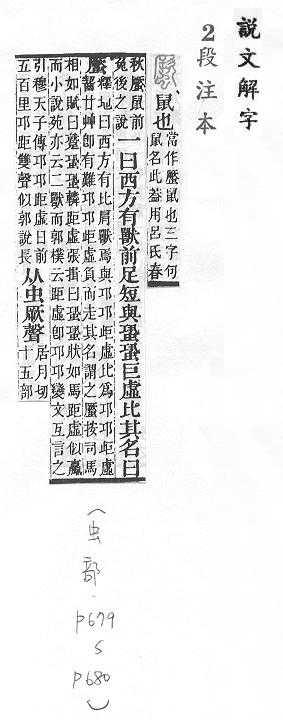 說文解字
2 段注本
鼠也 當作蟨鼠也三字句
鼠名此葢用呂氏春
秋蟨鼠前
兔後之說 一曰西方有獸前足短與蛩蛩巨虛比其名曰
蟨 釋地曰西方有比肩獸焉與邛邛岠虛比爲邛邛岠虛
齧甘艸卽有難邛邛岠虛負而走其名謂之蟨按司馬
相如賦曰蹵蛩蛩轔距虛張揖曰蛩蛩狀如馬距虛似驘
而小說苑亦云二獸而郭樸云距虛卽邛邛變文互言之
引穆天子傳邛邛距虛日前
五百里邛距雙聲似郭說長 从虫厥聲 居月切
十五部
(虫部.
p679
S
p680)